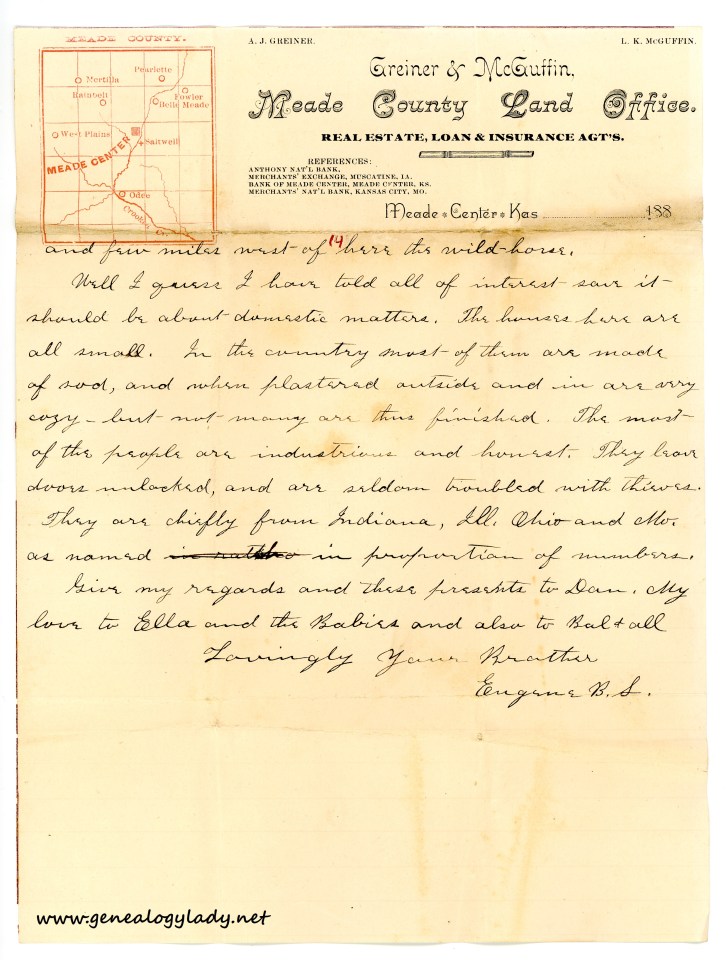 MEADE COUNTY.
Mertilla
Pearlette
Fowler
Belle Meade
West Plains
MEADE CENTER
Saltwell
Odee
Crooked
A. J. GREINER.
L. K. McGUFFIN.
Greiner & McGuffin,
Meade County Land Office.
REAL ESTATE, LOAN & INSURANCE AGT'S.
REFERENCES:
ANTHONY NAT'L BANK,
MERCHANTS' EXCHANGE, MUSCATINE, IA.
BANK OF MEADE CENTER, MEADE CENTER, KS.
MERCHANTS' NAT'L BANK, KANSAS CITY, MO.
Meade Center Kas 188
14
and few miles west of here the wild-horse.
Well I guess I have told all of interest save it
should be about domestic matters. The houses here are
all small. In the country most of them are made
of sod, and when plastered outside and in are very
cozy - but not many are thus finished. The most
of the people are industrious and honest. They leave
doors unlocked, and are seldom troubled with thieves.
They are chiefly from Indiana, Ill. Ohio and Mo.
as named in proportion of numbers.
Give my regards and these presents to Dan. My
love to Ella and the Babies and also to Bal & all
Lovingly Your Brother
Eugene B. S.
www.genealogylady.net